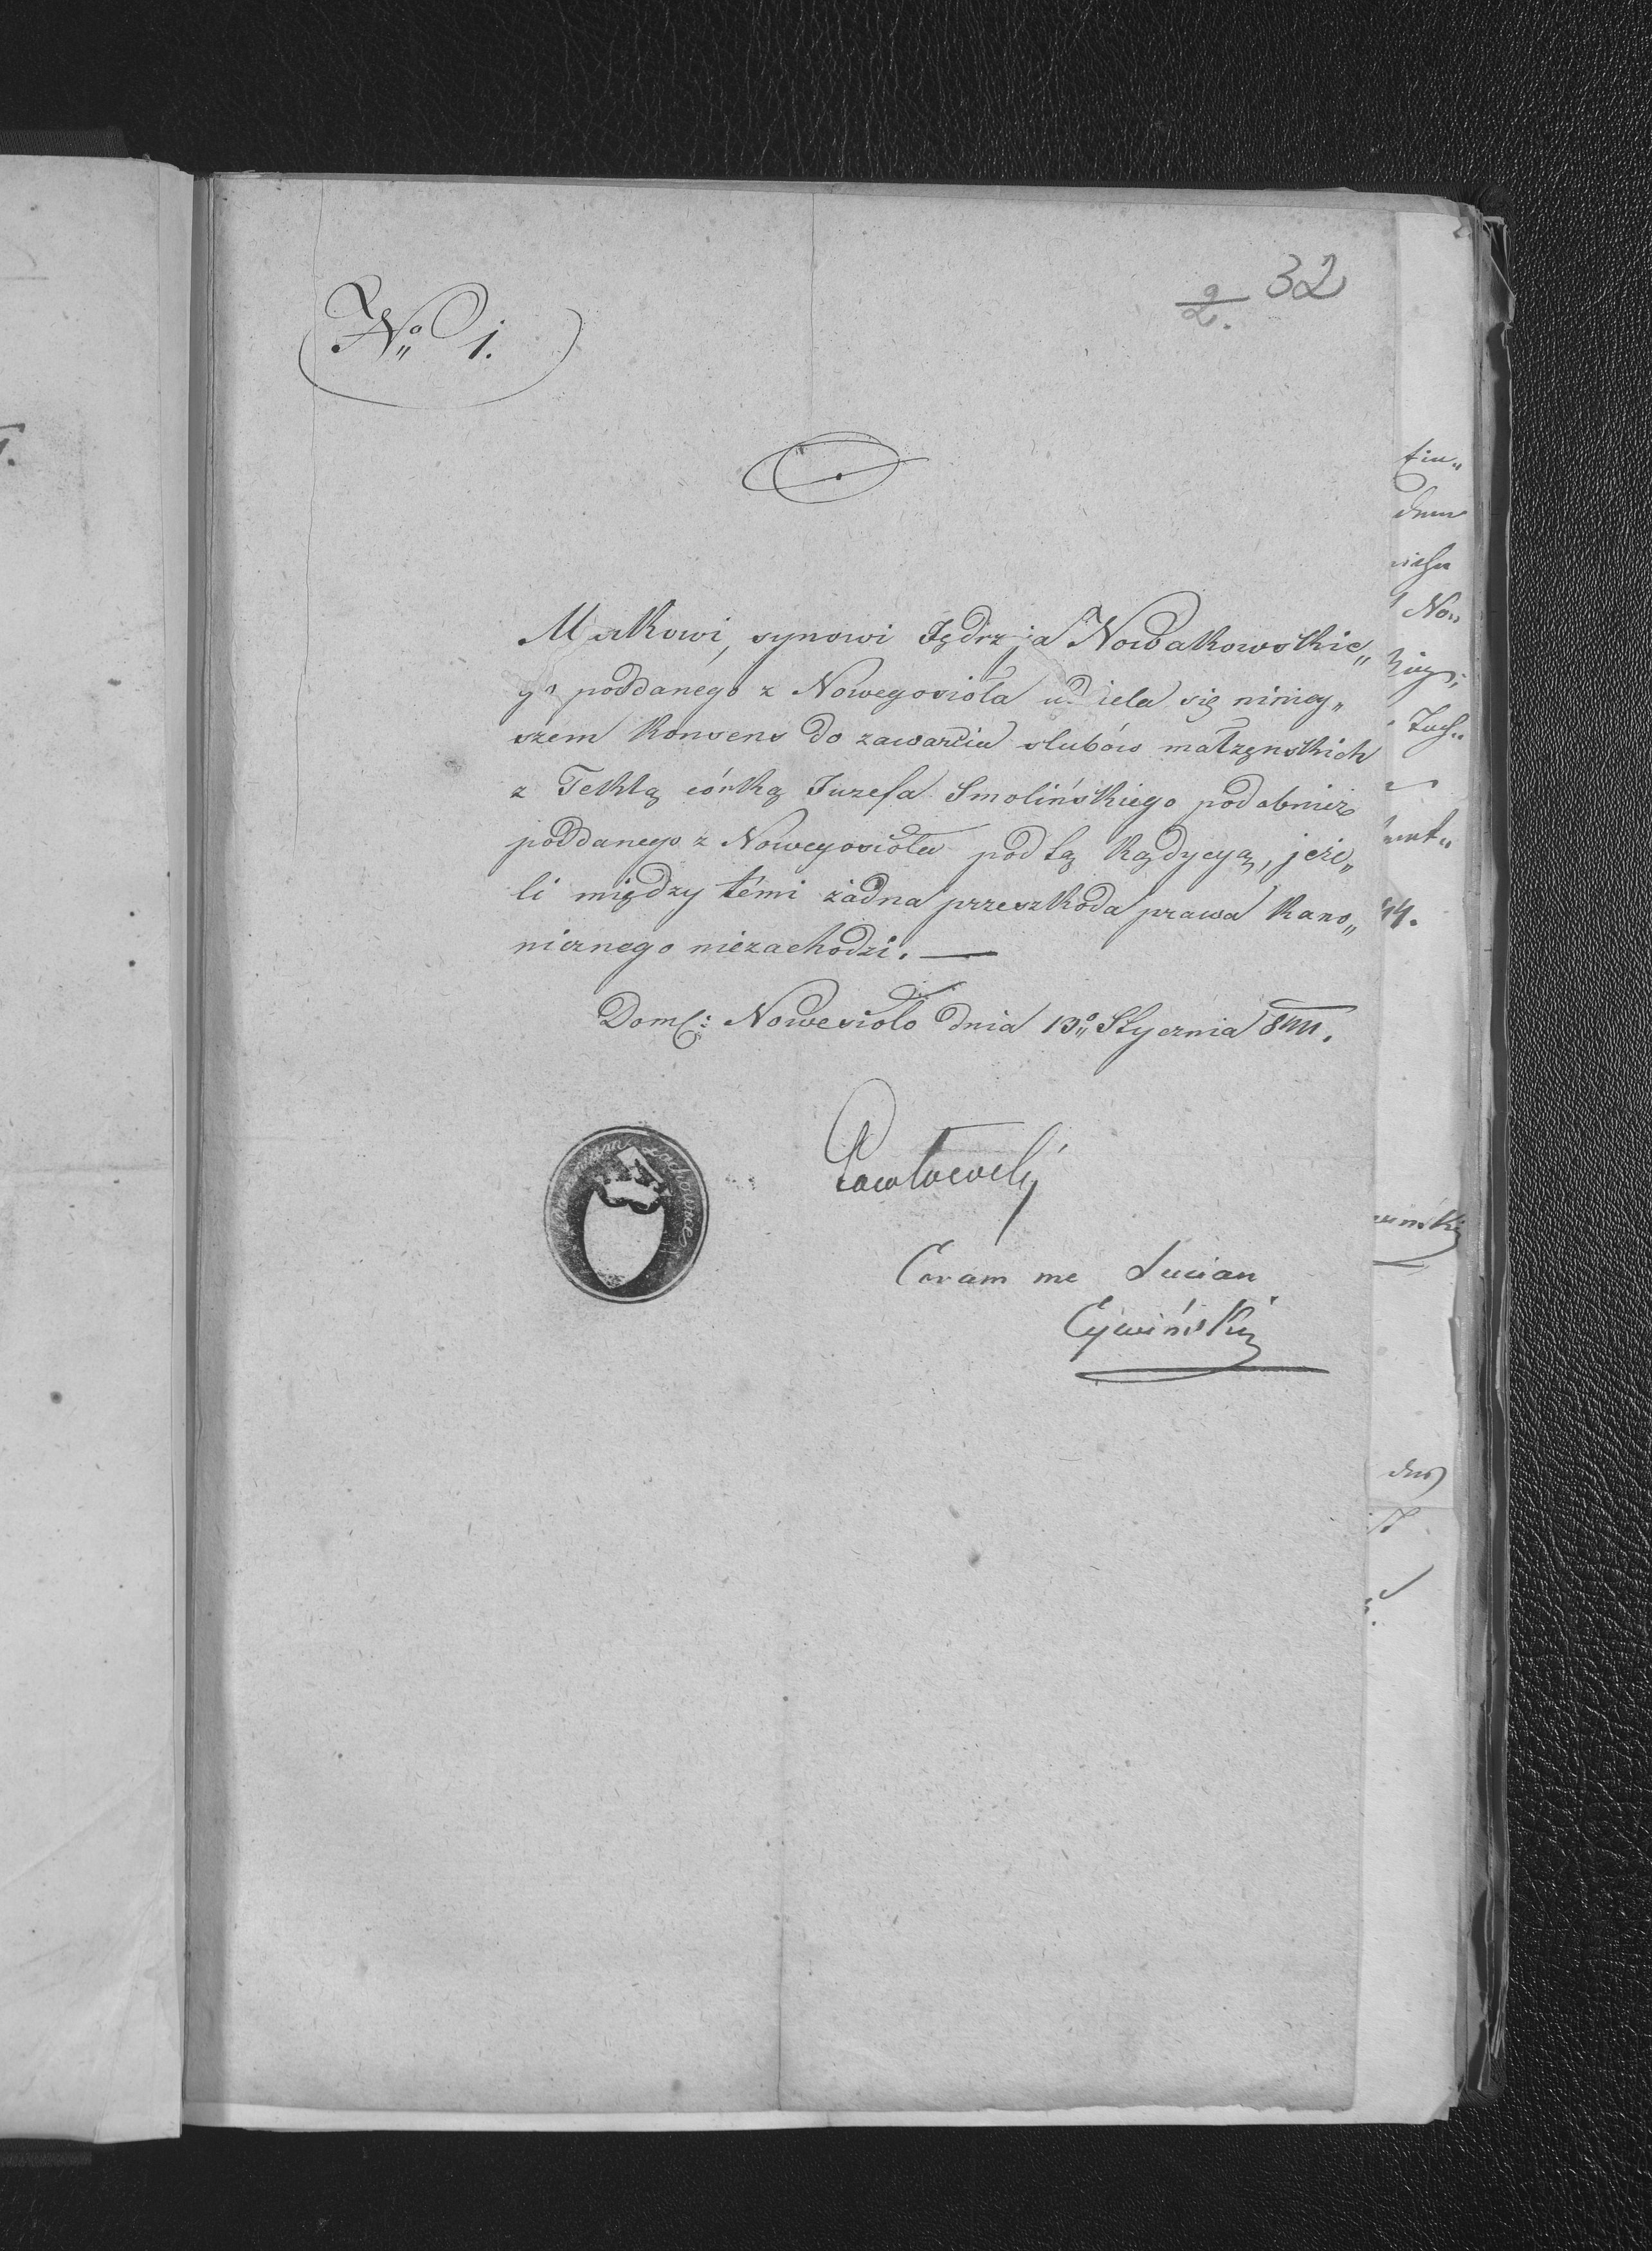 32
2/2.
No 1.
Markowi, synowi Jędrzja Nowakowskie„
go poddanégo z Nowegosioła udziela się niniey„
szem Konsens do zawarcia slubów małzęnskich
z Teklą córką Juzefa Smolińskiego podobnież
poddanego z Nowegosioła pod tą Kądycyą, jeże„
li między témi żadna przeszkoda prawa Kano„
nicznego niezachodzi. —
Dom: Nowesioło dnia 13o Stycznia
Pawłowski
Coram me Lucian
Cywiński